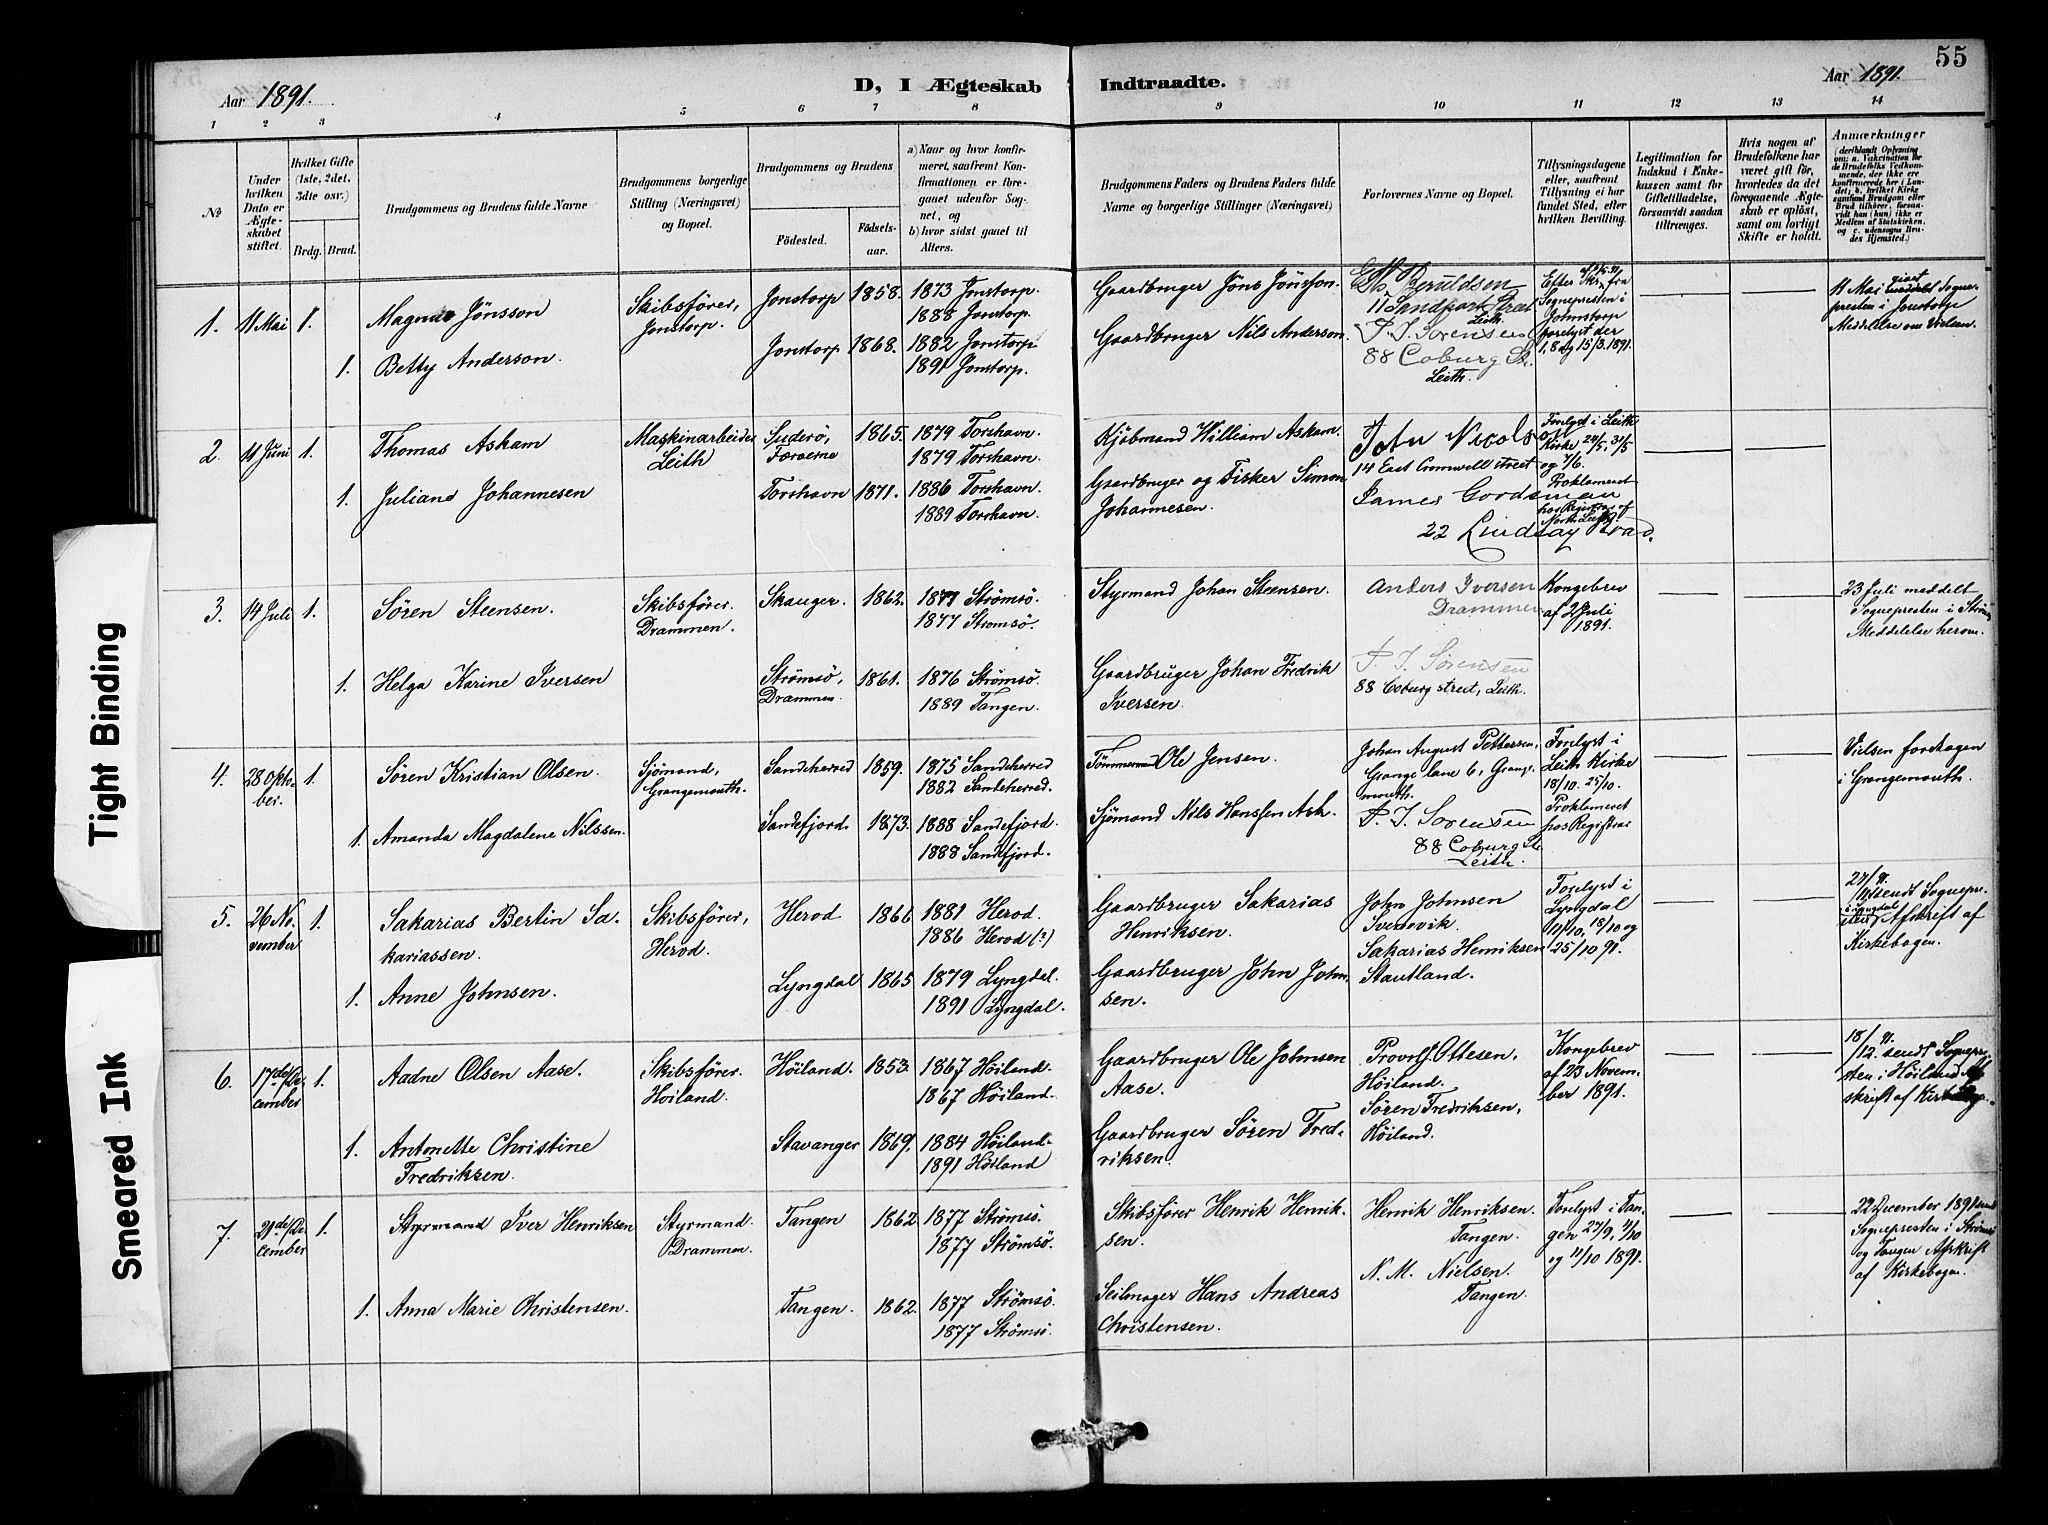 55
Aar 1891.
D, I Ægteskab Indtraadte.
Aar 1891.
1 2 3 4 5 6 7 8 9 10 11 12 13 14
No
Under hvilken Dato er Ægteskabet stiftet.
Hvilket Gifte (1ste, 2det, 3dte osv.)
Brdg. Brud.
Brudgommens og Brudens fulde Navne
Brudgommens borgerlige Stilling (Næringsvei) og Bopæl.
Brudgommens og Brudens
Födested.
Födselsaar.
a) Naar og hvor konfirmeret, saafremt Konfirmationen er foregaaet udenfor Sognet, og
b) hvor sidst gaaet til Alters.
Brudgommens Faders og Brudens Faders fulde Navne og borgerlige Stillinger (Næringsvei)
Forlovernes Navne og Bopæl.
Tillysningsdagene eller, saafremt Tillysning ei har fundet Sted, efter hvilken Bevilling.
Legitimation for Indskud i Enkekassen samt for Giftetilladelse, forsaavidt saadan tiltrænges.
Hvis nogen af Brudefolkene har været gift för, hvorledes da det foregaaende Ægteskab er oplöst, samt om lovligt Skifte er holdt.
Anmærkninger
(deriblandt Oplysning om: a. Vakcination for de Brudefolks Vedkommende, der ikke ere konfirmerede her i Landet; b. hvilket Kirkesamfund Brudgom eller Brud tilhörer, forsaavidt han (hun) ikke er Medlem af Statskirken, og c. udensogns Brudes Hjemsted.)
1. 11 Mai 1. Magnus Jönsson Skibsförer, Jonstorp. Jonstorp 1858. 1873 Jonstorp. 1888 Jonstorp.
Gaardbruger Jöns Jönsson. 17 Sandport Street Leith.
1. Betty Anderson. Jonstorp 1868. 1882 Jonstorp 1891 Jonstorp.
Gaardbruger Nils Anderson. P. J. Sorensen 88 Coburg St. Leith.
Sognepresten i Johnstorp forelyst der 1, 8 og 15/3. 1891.
11 Mai Sognepresten i Jonstorp Meddelelse om Vielsen.
2. 11 Juni 1. Thomas Askam Maskinarbeider Leith Suderö, Færöerne 1865. 1879 Torshavn. 1879 Torshavn.
Kjöbmand William Askam. John Nicolson 14 East Cromwell street
Forelyst i Leith Kirke 24/5, 31/5 og 7/6. Proklameret hos Registrar af North Leith.
1. Juliane Johannesen Torshavn 1871. 1886 Torshavn. 1889 Torshavn.
Gaardbruger og Fisker Simon Johannesen. James Goodsman 22 Lindsay Road.
3. 14 Juli 1. Sören Steensen. Skibsförer. Drammen. Skauger. 1862. 1877 Strömsö. 1877 Strömsö.
Styrmand Johan Steensen. Anders Iversen Drammen
Kongebrev af 2 Juli 1891.
23 Juli meddelt Sognepresten i Strömsö Meddelelse herom.
1. Helga Karine Iversen Strömsö, Drammen 1861. 1876 Strömsö. 1889 Tangen.
Gaardbruger Johan Fredrik Iversen. P. J. Sörensen 88 Coburg street, Leith.
4. 28 Oktober. 1. Sören Kristian Olsen. Sjömand, Grangemouth. Sandeherred 1859. 1875 Sandeherred 1882 Sandeherred.
Tömmermand Ole Jensen. Johan August Pettersen, Grange lane 6, Grangemouth.
Forelyst i Leith Kirke 18/10. 25/10. Proklameret hos Registrar
Vielsen foretagen i Grangemouth.
1. Amanda Magdalene Nilssen. Sandefjord. 1873. 1888 Sandefjord. 1888 Sandefjord.
Sjömand Nils Hanssen Ask. P. J. Sorensen 88 Coburg St. Leith.
5. 26 November 1. Sakarias Bertin Sakariassen. Skibsförer, Herod. Herod 1866 1881 Herod. 1886 Herod (?)
Gaardbruger Sakarias Henriksen. John Johnsen Svenevik.
Forelyst i Lyngdal 11/10, 18/10 og 25/10 91.
27/11 sendt Sognepresten i Lyngdal Afskrift af Kirkebogen.
1. Anne Johnsen. Lyngdal 1865 1879 Lyngdal. 1891 Lyngdal.
Gaardbruger John Johnsen. Sakarias Henriksen Stautland.
6. 17de December 1. Aadne Olsen Aase. Skibsförer. Höiland. Höiland. 1853. 1867 Höiland. 1867 Höiland.
Gaardbruger Ole Johnsen Aase. Ottesen, Höiland.
Kongebrev af 23 November 1891.
18/12. sendt Sognepresten i Höiland Afskrift af Kirkebog.
1. Antonette Christine Fredriksen. Stavanger 1869. 1884 Höiland. 1891 Höiland
Gaardbruger Sören Fredriksen. Sören Fredriksen, Höiland.
7. 21de December 1. Styrmand Iver Henriksen Styrmand. Drammen. Tangen 1862 1877 Strömsö. 1877 Strömsö.
Skibsförer Henrik Henriksen. Henrik Henriksen. Tangen.
Forelyst i Tangen 27/9, 4/10 og 11/10 1891.
22 December 1891 sendt Sognepresten i Strömsö og Tangen Afskrift af Kirkebogen.
1. Anna Marie Christensen. Tangen. 1862. 1877 Strömsö. 1877 Strömsö.
Seilmager Hans Andreas Christensen. N. M. Nielsen. Tangen.
Tight Binding
Smeared Ink